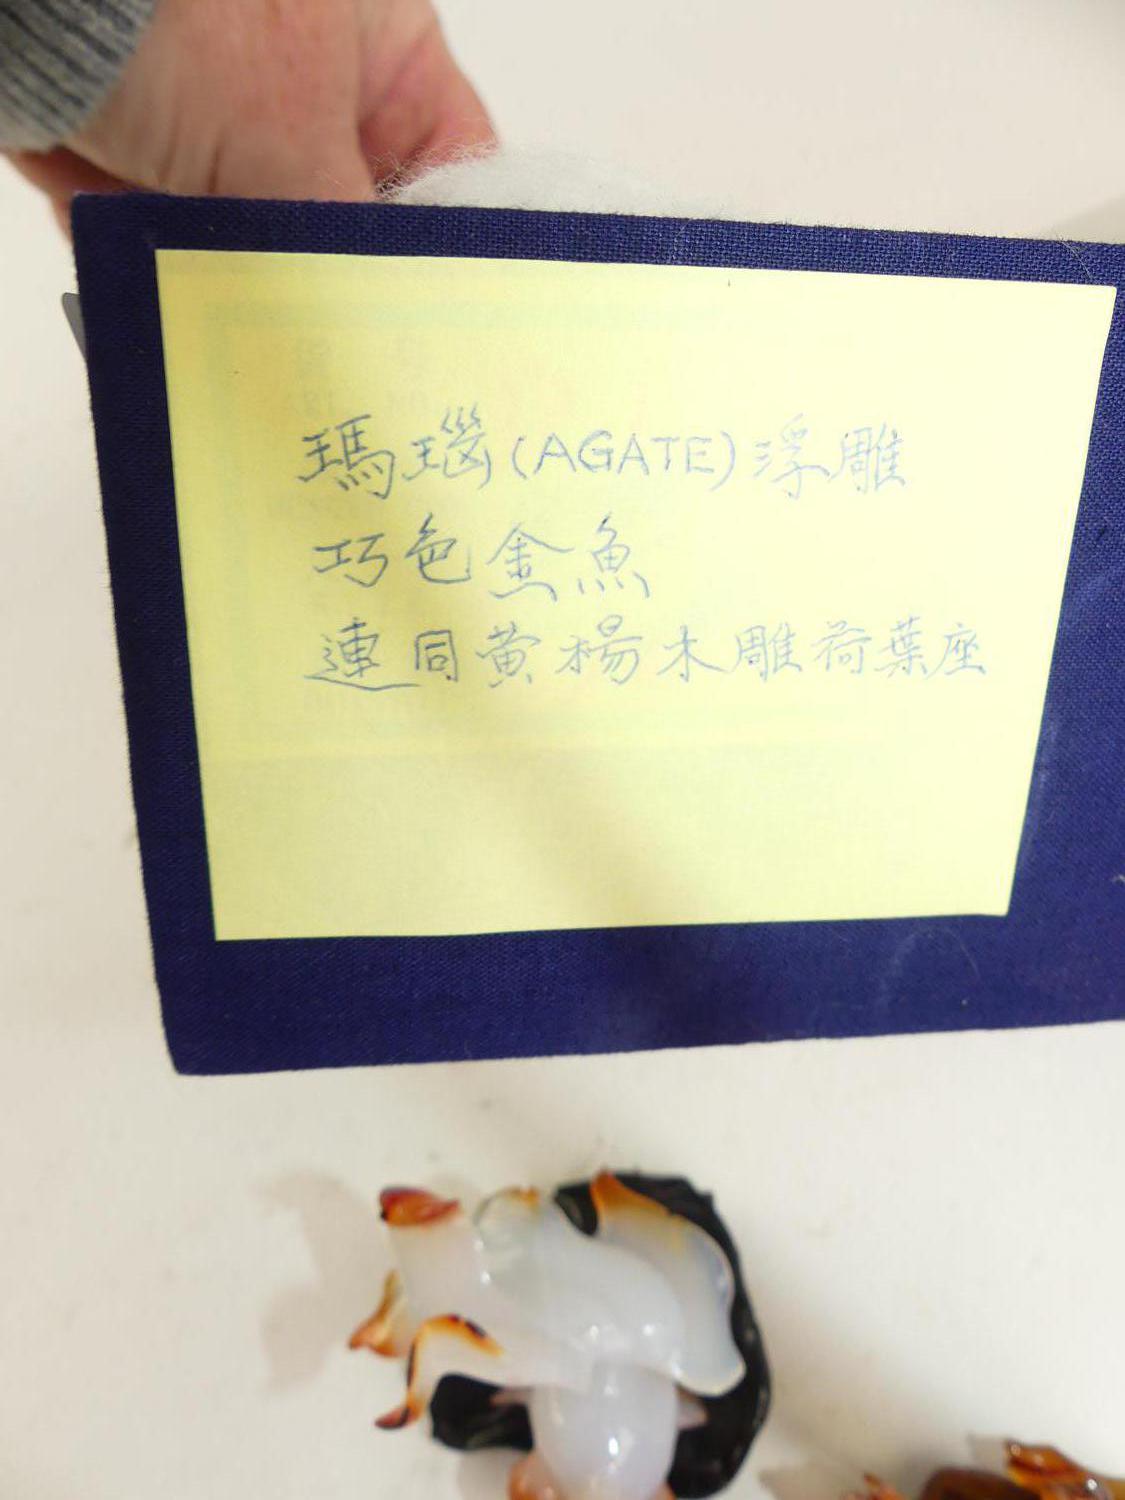 瑪瑙(AGATE)浮雕
巧色金魚
連同黄楊木雕荷葉座